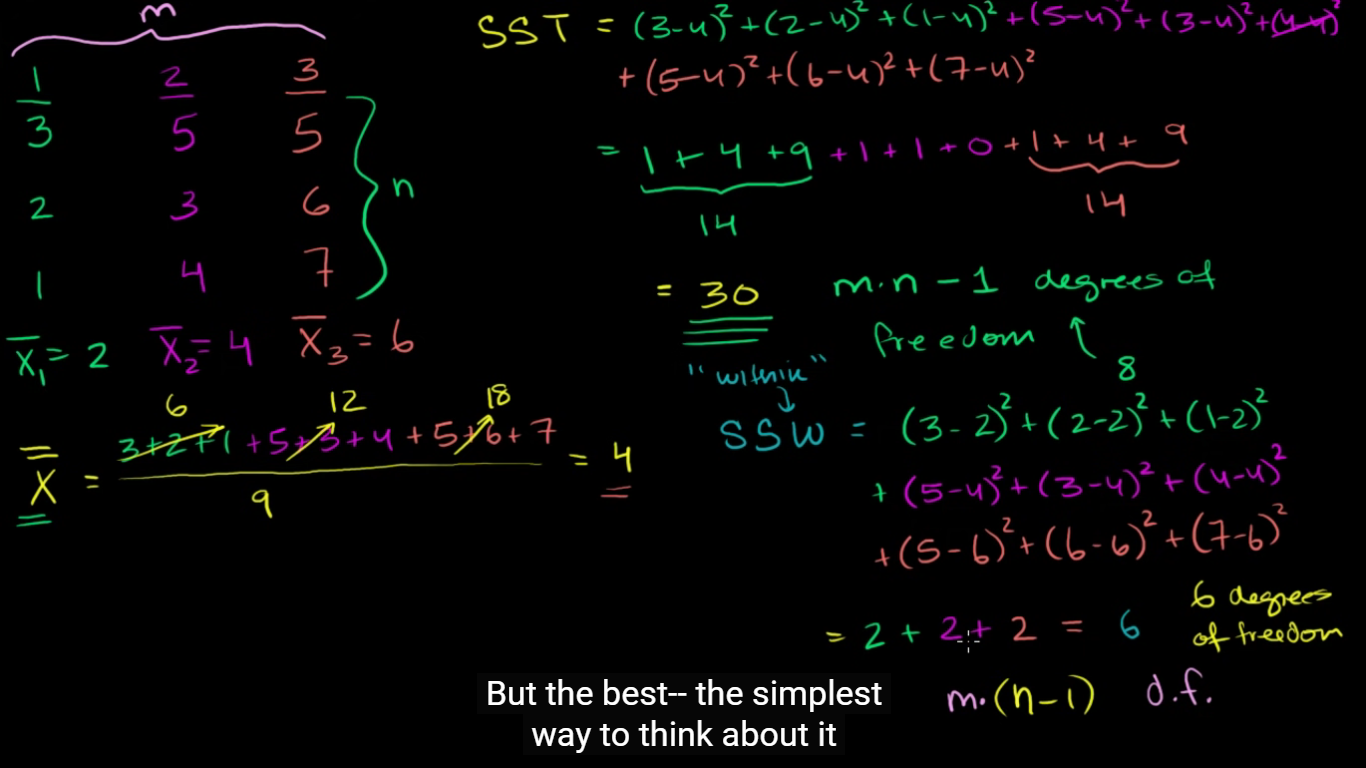 m
1 2 3
3 5 5
2 3 6
n
1 4 7
x̄₁ = 2 x̄₂ = 4 x̄₃ = 6
6 12 18
x̿ = 3+2+1 +5+3+4 +5+6+7 = 4
9
SST = (3-4)² + (2-4)² + (1-4)² + (5-4)² + (3-4)² + (4-4)²
+ (5-4)² + (6-4)² + (7-4)²
= 1 + 4 + 9 + 1 + 1 + 0 + 1 + 4 + 9
14 14
= 30 m·n - 1 degrees of
freedom
8
"within"
SSW = (3-2)² + (2-2)² + (1-2)²
+ (5-4)² + (3-4)² + (4-4)²
+ (5-6)² + (6-6)² + (7-6)²
= 2 + 2 + 2 = 6
6 degrees
of freedom
m·(n-1) d.f.
But the best-- the simplest
way to think about it